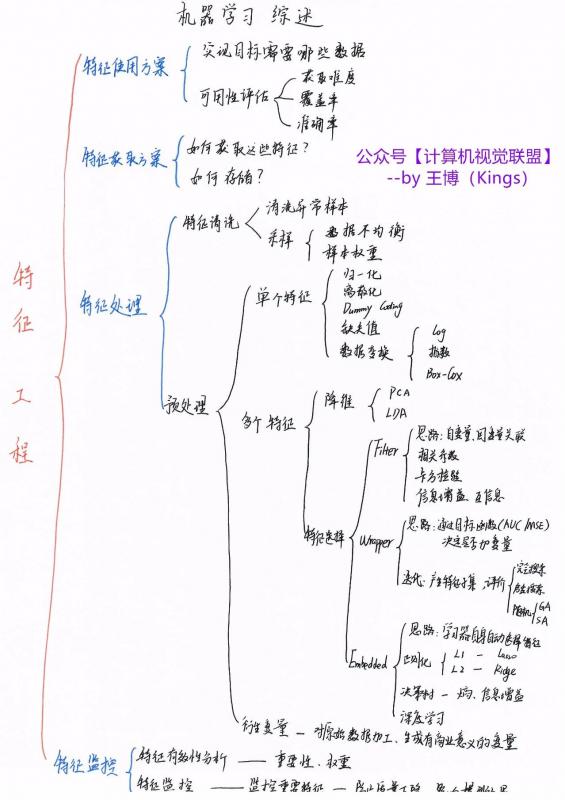 机器学习 综述
特征工程
特征使用方案
实现目标需要哪些数据
可用性评估
获取难度
覆盖率
准确率
特征获取方案
如何获取这些特征?
如何存储?
公众号【计算机视觉联盟】
--by 王博（Kings）
特征处理
特征清洗
清洗异常样本
采样
数据不均衡
样本权重
预处理
单个特征
归一化
离散化
Dummy Coding
缺失值
数据变换
Log
指数
Box-Cox
多个特征
降维
PCA
LDA
特征选择
Filter
思路:自变量,因变量关联
相关系数
卡方检验
信息增益、互信息
Wrapper
思路:通过目标函数(AUC/MSE)
决定是否加变量
迭代:产生特征子集,评价
完全搜索
启发搜索
随机
GA
SA
Embedded
思路:学习器自身自动选择特征
正则化
L1 — Lasso
L2 — Ridge
决策树 — 熵、信息增益
深度学习
衍生变量 — 对原始数据加工、生成有商业意义的变量
特征监控
特征有效性分析 — 重要性、权重
特征监控 — 监控重要特征 —